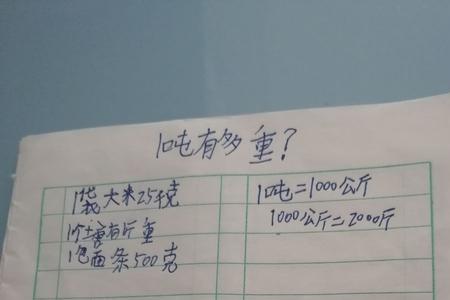 1吨有多重？
1袋大米25千克
1个土有斤重
1包面条500克
1吨=1000公斤
1000公斤=2000斤